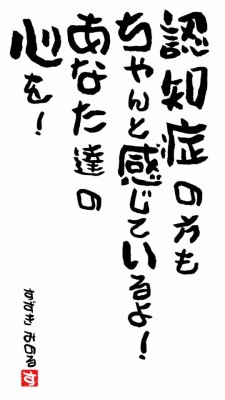 認知症の方も
ちゃんと感じているよ!
あなた達の
心を!
すずき